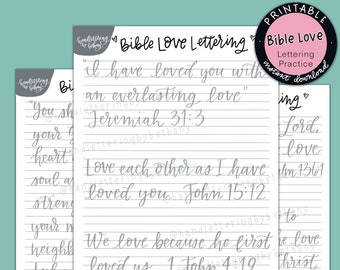 PRINTABLE
Bible Love
Lettering
Practice
instant download
handlettering
by bethany
Bible Love Lettering
"I have loved you with
an everlasting love"
Jeremiah 31:3
Love each other as I have
loved you. John 15:12
We love because he first
loved us. 1 John 4:19
@handletteringbybethany
"You s
your
heart
soul a
streng
mind
neighb
ering
Lord,
love
to
love
Christ